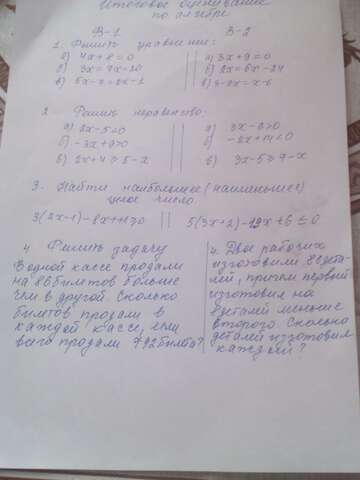 Итоговое оценивание
по алгебре
В-1 В-2
1. Решить уравнение:
а) 4x+8=0 а) 3x+9=0
б) 3x=7x-20 б) 2x=6x-24
в) 5x-7=2x-1
2. Решить неравенство:
а) 2x-5≤0 а) 3x-6≥0
б) -3x+9>0 б) -2x+14<0
в) 2x+4≥5-x в) 3x-5≥7-x
3. Найти наибольшее (наименьшее)
целое число
3(2x-1)-8x+11≥0 5(3x+2)-19x+6≤0
4 Решить задачу
В одной кассе продали
на 86 билетов больше
чем в другой. Сколько
билетов продали в
каждой кассе, если
всего продали 792 билета?
4. Двое рабочих
изготовили дета-
лей, причем первый
изготовил на
8 деталей меньше
второго. Сколько
деталей изготовил
каждый?